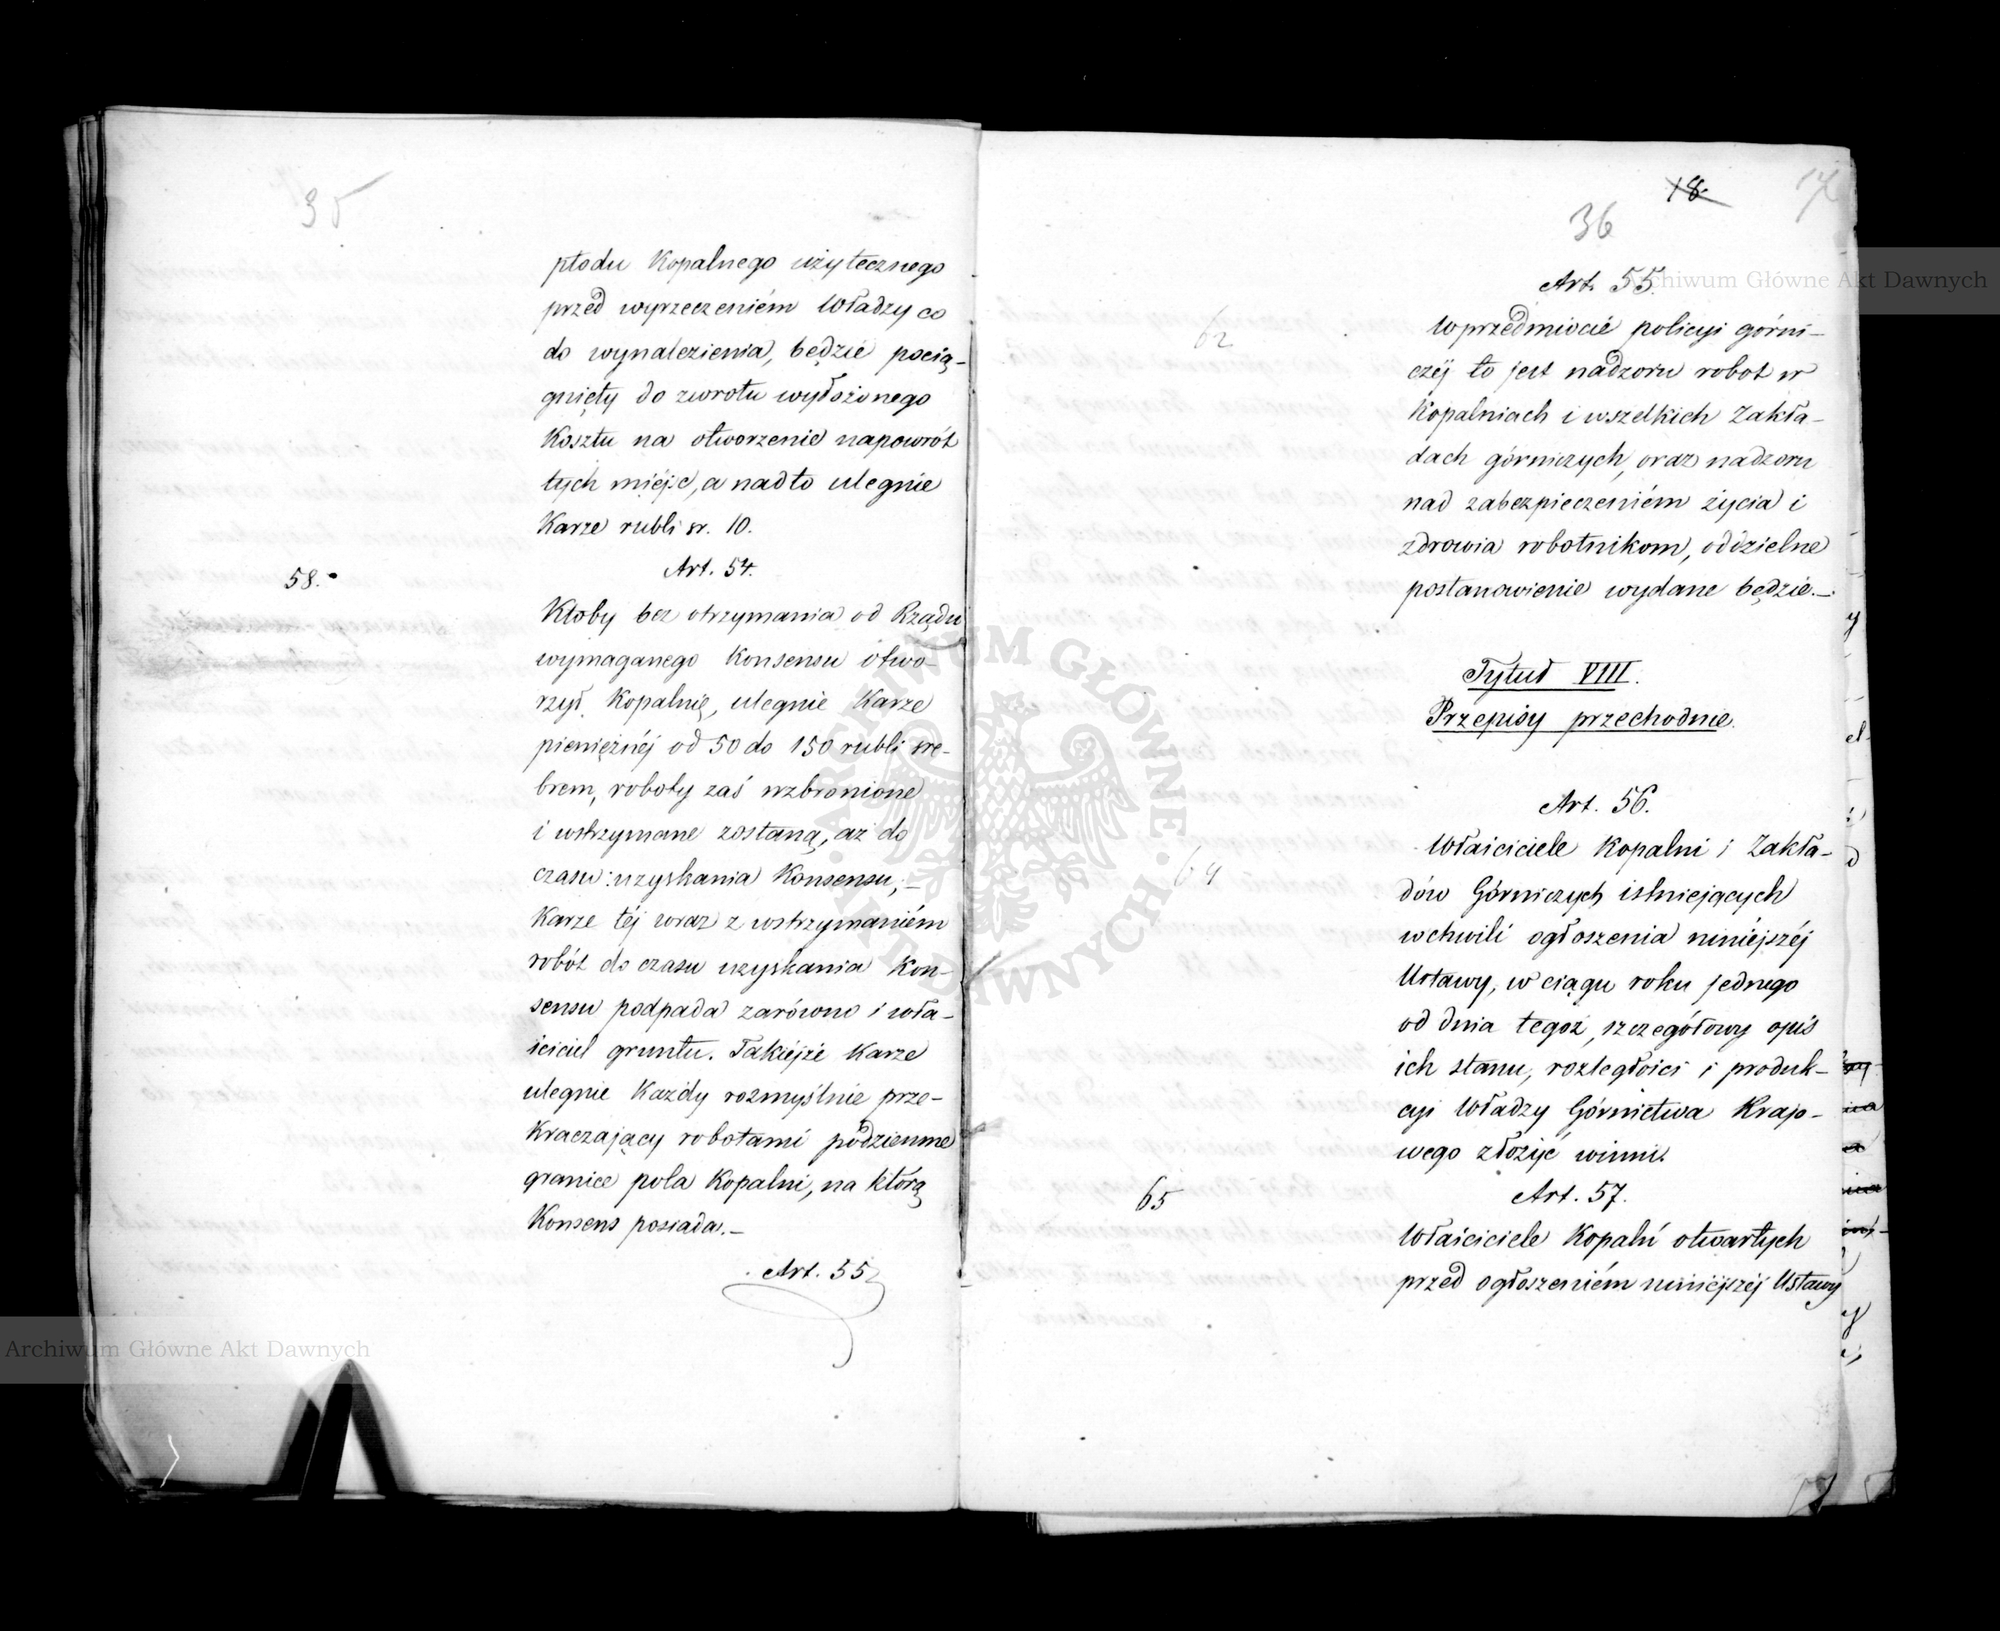 35
płodu Kopalnego użytecznego
przed wyrzeczeniém Władzy co
do wynalezienia, będzie pocią-
gnięty do zwrotu wyłożonego
Kosztu na otworzenie napowrót
tych miéjsc, a nadto ulegnie
Karze rubli sr. 10.
58.
Art. 54.
Ktoby bez otrzymania od Rządu
wymaganego Konsensu otwo-
rzył Kopalnię, ulegnie Karze
pieniężnéj od 50 do 150 rubli sre-
brem, roboty zaś wzbronione
i wstrzymane zostaną, aż do
czasu uzyskania Konsensu,-
Karze téj wraz z wstrzymaniém
robót do czasu uzyskania Kon-
sensu podpada zarówno i wła-
ściciel gruntu. Takiéjże Karze
ulegnie Każdy rozmyślnie prze-
Kraczający robotami podziemne
granice pola Kopalni, na którą
Konsens posiada.-
Art. 55
18.
17
36
Art. 55.
62
W przedmiocie policyi górni-
czéj to jest nadzoru robot w
Kopalniach i wszelkich Zakła-
dach górniczych, oraz nadzoru
nad zabezpieczeniém życia i
zdrowia robotnikom, oddzielne
postanowienie wydane będzie.-
Tytuł VIII.
Przepisy przechodnie.
Art. 56.
64
Właściciele Kopalni i Zakła-
dów Górniczych istniejących
w chwili ogłoszenia niniéjszéj
Ustawy, w ciągu roku jednego
od dnia tegoż, szczegółowy opis
ich stanu, rozległości i produk-
cyi Władzy Górnictwa Krajo-
wego złożyć winni.
65
Art. 57.
Właściciele Kopalń otwartych
przed ogłoszeniém niniéjszéj Ustawy
Archiwum Główne Akt Dawnych
Archiwum Główne Akt Dawnych
ARCHIWUM GŁÓWNE AKT DAWNYCH